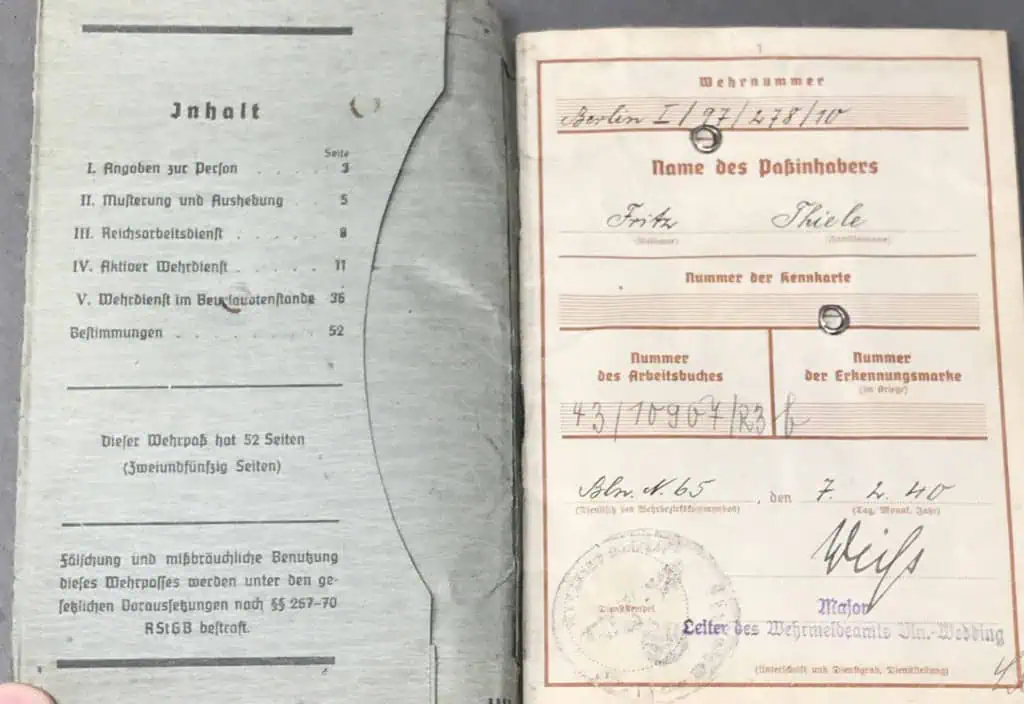 Inhalt
Seite
I. Angaben zur Person . . . . . 3
II. Musterung und Aushebung . 5
III. Reichsarbeitsdienst . . . . . 8
IV. Aktiver Wehrdienst . . . . . 11
V. Wehrdienst im Beurlaubtenstande 36
Bestimmungen . . . . . . . . 52
Dieser Wehrpaß hat 52 Seiten
(Zweiundfünfzig Seiten)
Fälschung und mißbräuchliche Benutzung
dieses Wehrpasses werden unter den ge-
setzlichen Voraussetzungen nach §§ 267–70
RStGB bestraft.
1
Wehrnummer
Berlin I/97/278/10
Name des Paßinhabers
Fritz Thiele
(Vorname) (Familienname)
Nummer der Kennkarte
Nummer
des Arbeitsbuches
43/10907/R3 b
Nummer
der Erkennungsmarke
(im Kriege)
Bln. N. 65, den 7. 2. 40
(Dienstsitz des Wehrbezirkskommandos) (Tag, Monat, Jahr)
Weiß
Dienststempel
Major
Leiter des Wehrmeldeamts Bln.-Wedding
(Unterschrift und Dienstgrad, Dienststellung)